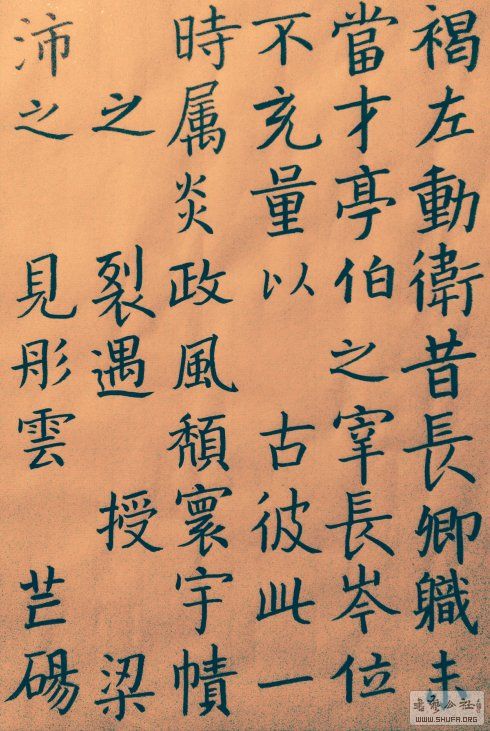 褐左動衛昔長卿職
當才亭伯之宰長岑位
不充量以古彼此一
時属炎政風頹寰宇幘
之裂遇授梁
沛之見彤雲芒碭
WWW.SHUFA.ORG